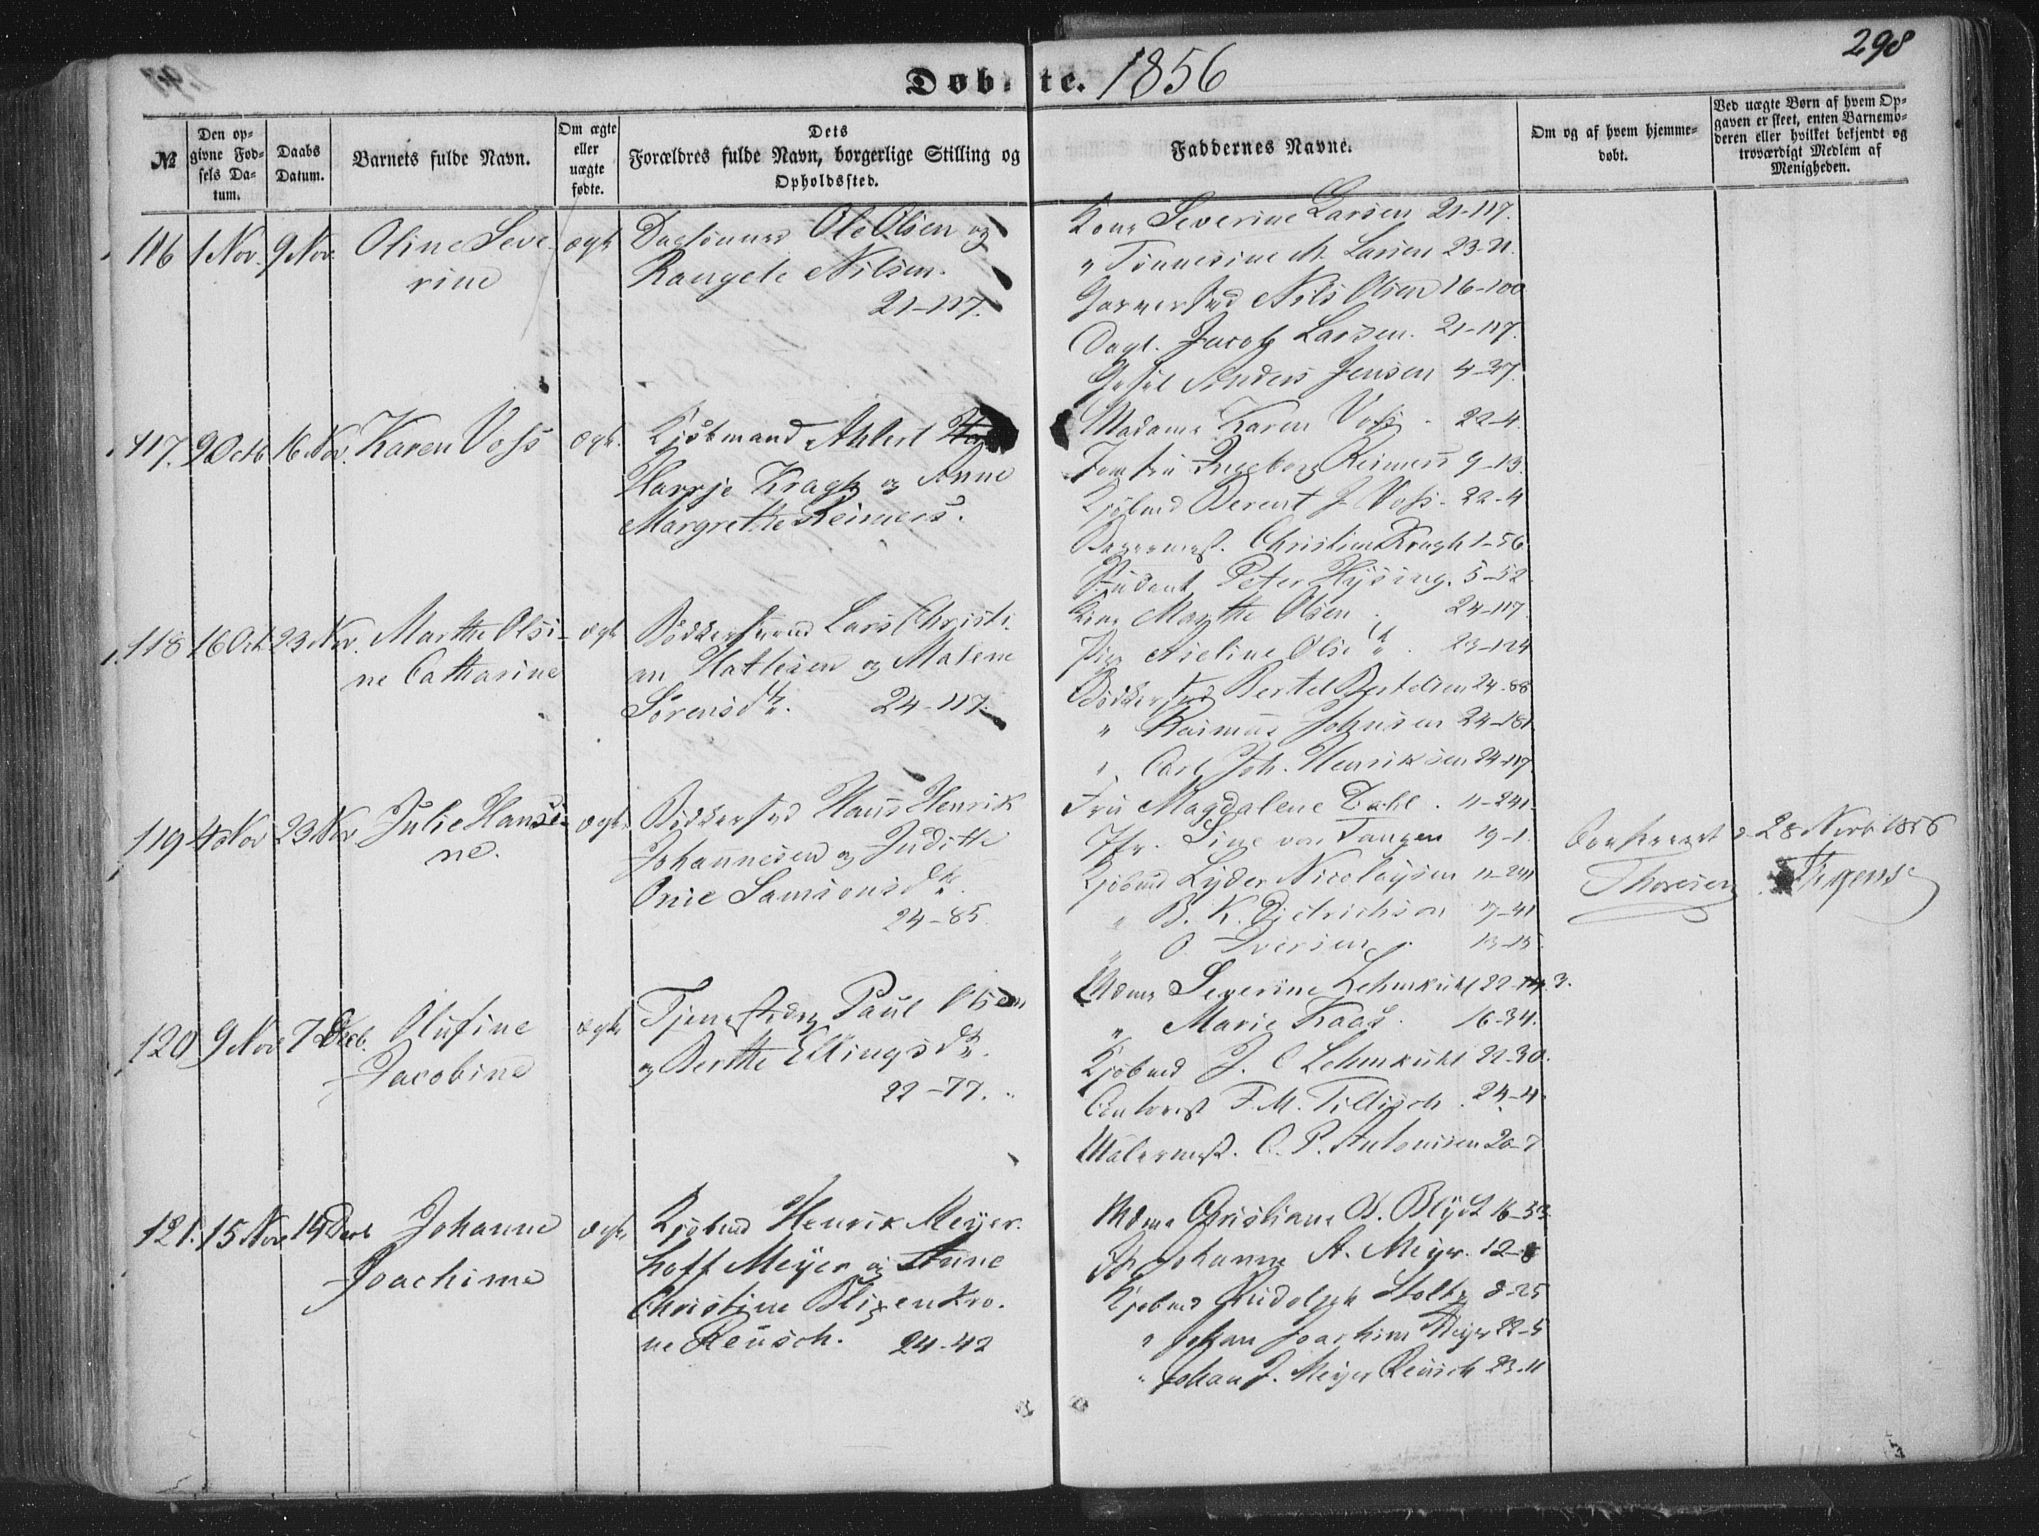 298
Døbte. 1856
№
Den op-
givne Fød-
sels Da-
tum.
Daabs
Datum.
Barnets fulde Navn.
Om ægte
eller
uægte
fødte.
Dets
Forældres fulde Navn, borgerlige Stilling og
Opholdssted.
Faddernes Navne.
Om og af hvem hjemme-
døbt.
Ved uægte Børn af hvem Op-
gaven er skeet, enten Barnemo-
deren eller hvilket bekjendt og
troværdigt Medlem af
Menigheden.
116 1 Nov. 9 Nov. Oline Seve-
rine
ægte
Ole Olsen og
Nilsen.
21-117.
Kone Severine Larsen 21-117.
" Tønnesine M. Larsen 23-21.
Nils Olsen 16-100
Dagl. Jacob Larsen. 21-117.
Anders Jensen 4-37.
117. 9 Octb 16 Nov. Karen Voss
ægte.
Kjøbmand Ahlert
Harrje Kragh og Anne
Margrethe Reimers.
Madame Karen Voss. 22-4.
Jomfru Ingeborg Reimers 9-13.
Kjøbmd Berent J. Voss. 22-4
Christian Kragh 1-56
Student Peter Hysing. 5-52.
118 16 Oct. 23 Nov. Marthe Olsi-
ne Catharine
ægte
Bødkersvend Lars Christi-
an Hatlesen og Malene
Sørensdtr. 24-117.
Kone Marthe Olsen. 24-117.
Pige Aseline Olsdtr. 23-124
Bødkersvd Bertel Bertelsen 24-88
" Rasmus Johnsen 24-181
" Carl Joh. Henriksen 24-117
119 4 Nov 23 Nov Julie Hansi-
ne.
ægte
Bødkersvd Hans Henrik
Johannesen og Judithe
Samsonsdtr.
24-85.
Fru Magdalene Dahl. 11-241.
Jfr. Sine von Tangen 19-1.
Kjøbmd Lyder Nicolaysen 11-241
" B. K. Dietrichson 17-41
" O. Iversen. 13-15.
28 Novb 1856
Thoresen
120 9 Nov 7 Decb. Olufine
Jacobine
ægte
Paul Olsen
og Berthe Ellingsdtr.
22-77.
Mdme Severine Lehmkuhl 22-
" Marie Kaas. 16-34.
Kjøbmd J. C Lehmkuhl 22-30.
Contorist F. M. Tillisch. 24-4.
Malermst. C. P. Antonisen 20-7
121. 15 Nov 14 Decb Johanne
Joachime
ægte
Kjøbmd Henrik Meyer.
hoff Meyer og Anne
Christine Blixenkro-
ne Reusch. 24-42
Mdme Christiane D. Blydt 16-53
Jfr Johanne A. Meyer. 12-8
Kjøbmd Rudolph Stoltz 8-25
" Johan Joachim Meyer 22-5
" Johan J. Meyer Reusch 23-11